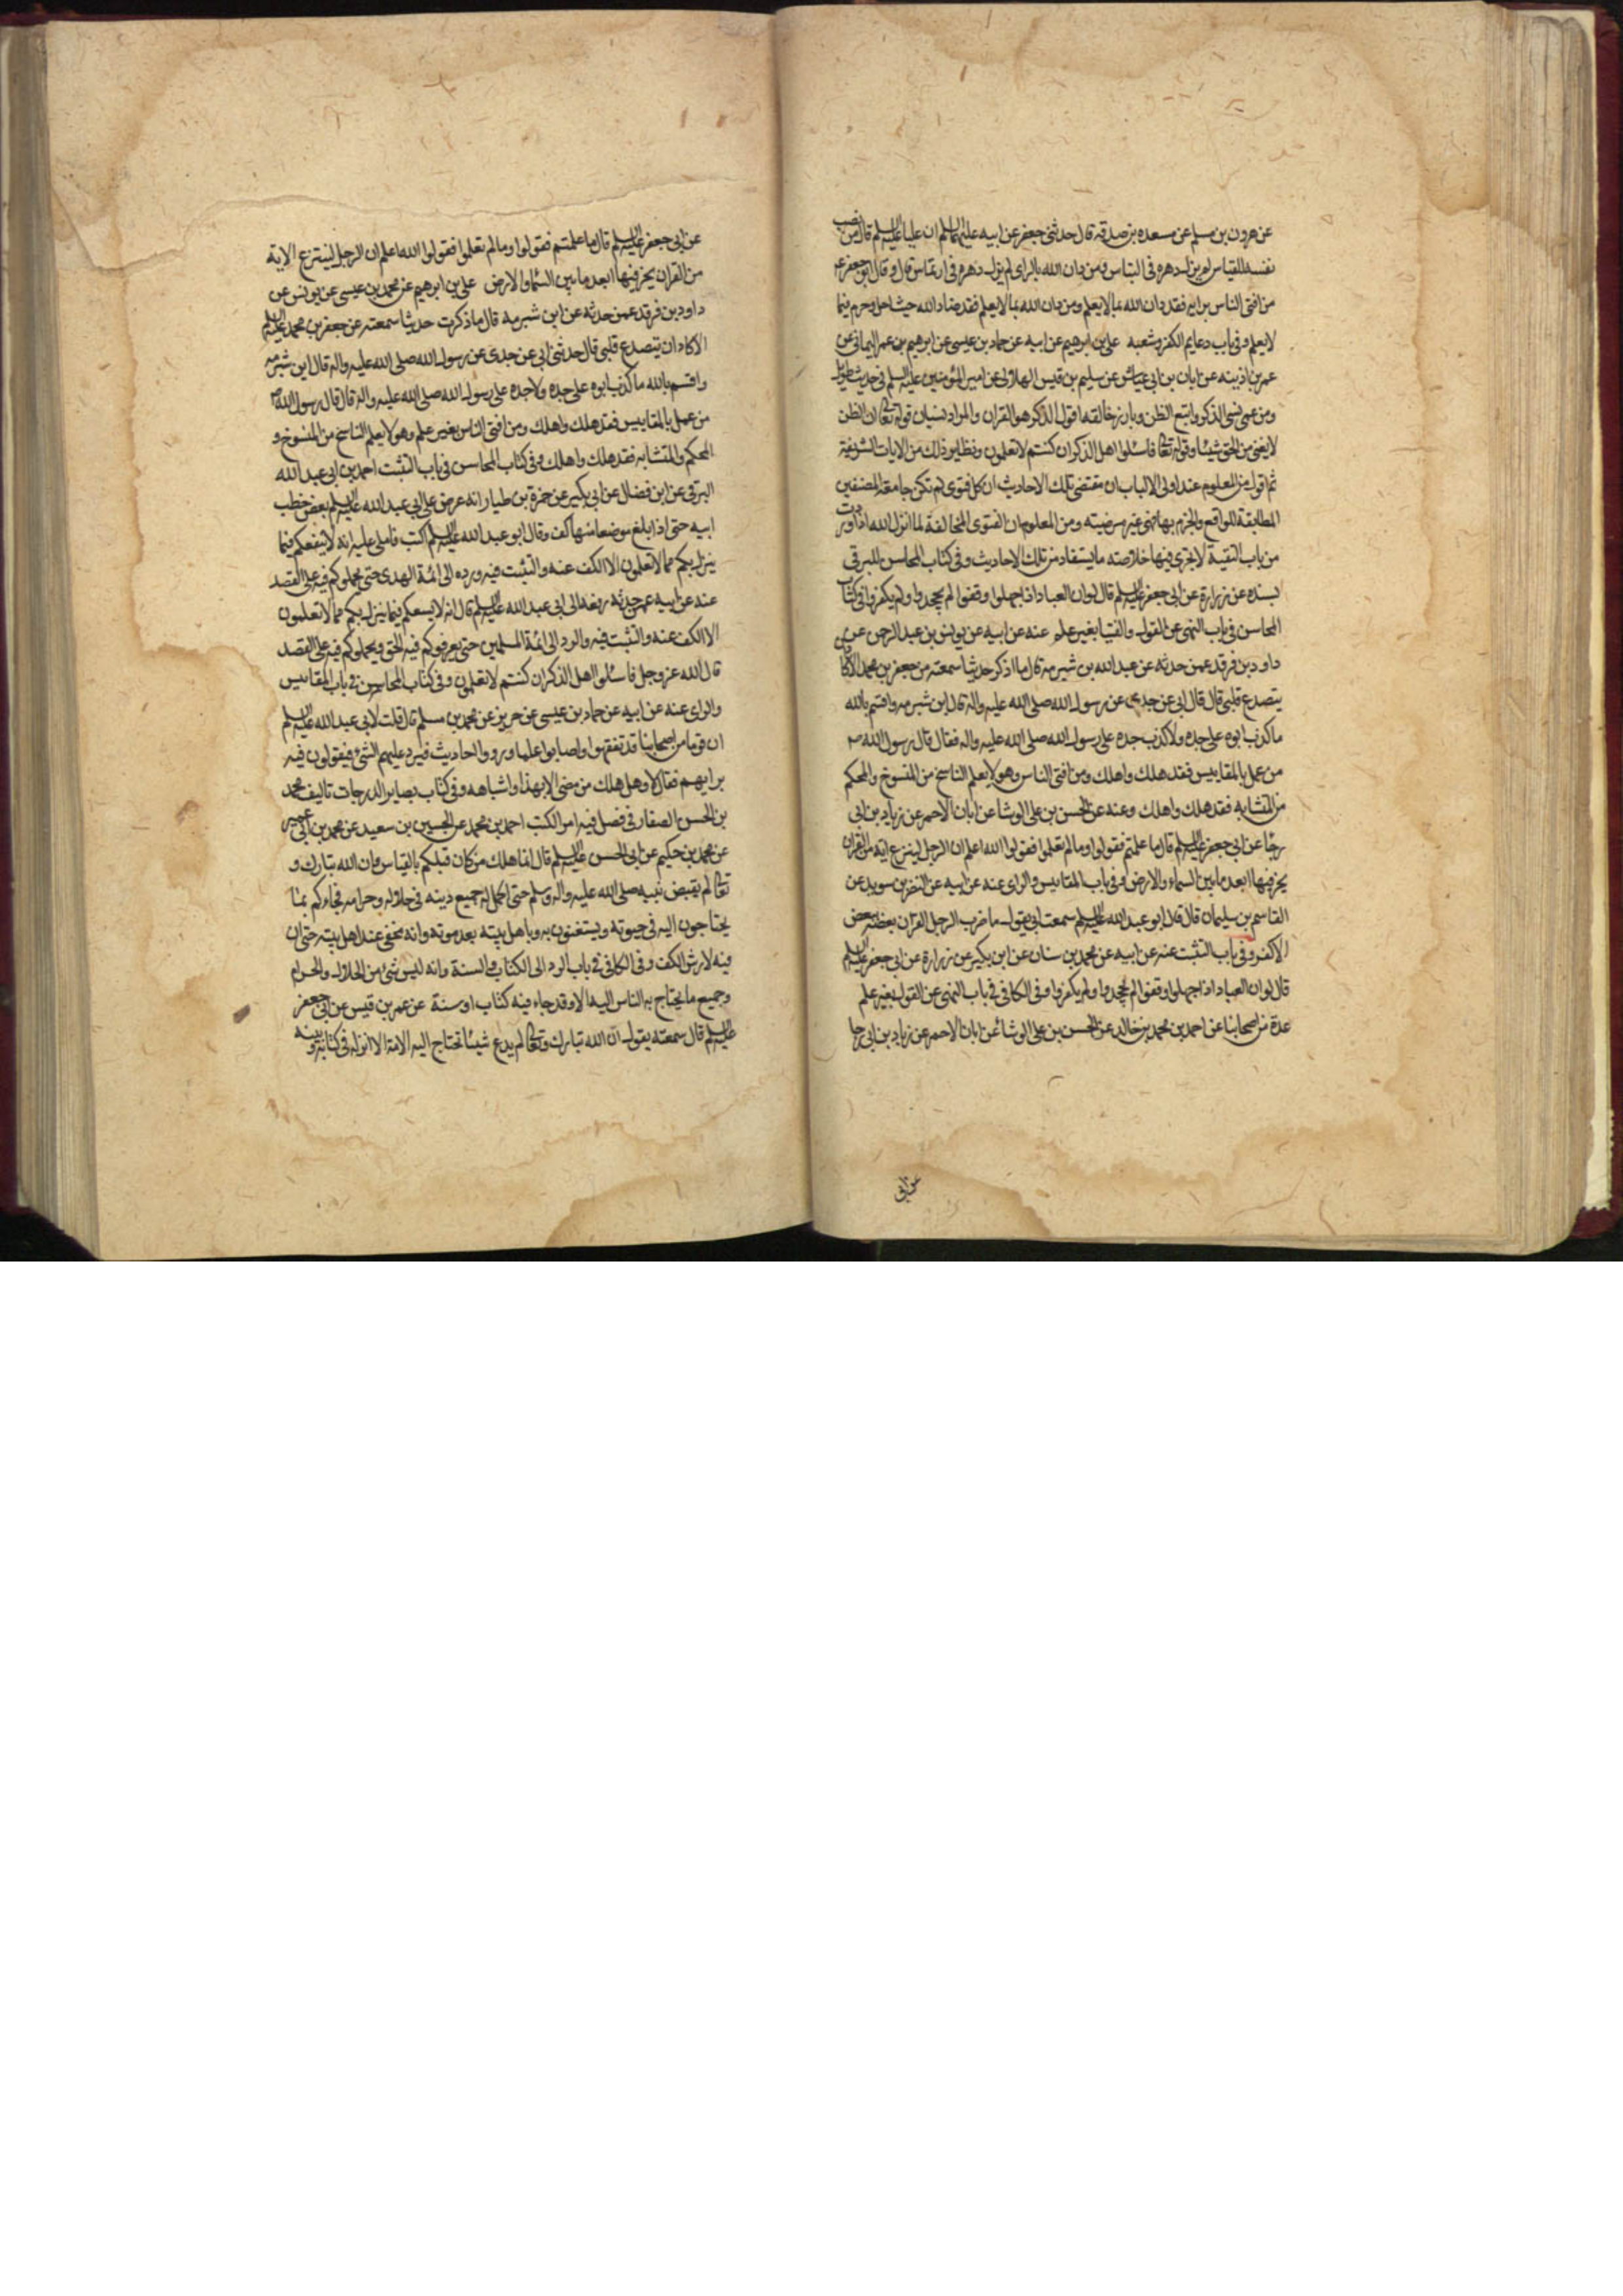 عن هرون بن مسلم عن مسعده بن صدقه قال حدثنى جعفر عن ابيه عليهما السلم ان عليا عليه السلم قال من نصب
نفسه للقياس لم يزل دهره فى التباس ومن دان الله بالراى لم يزل دهره فى ارتماس قال و قال ابو جعفر ع
من افتى الناس برايه فقد دان الله بما لايعلم ومن دان الله بما لايعلم فقد ضاد الله حيث احل وحرم فيما
لايعلم وفى باب دعايم الكفر وشعبه على بن ابرهيم عن ابيه عن حماد بن عيسى عن ابرهيم بن عمر اليمانى عن
عمر بن اذينه عن ابان بن ابى عياش عن سليم بن قيس الهلالى عن امير المؤمنين عليه السلم فى حديث طويل
ومن عمى نسى الذكر واتبع الظن وبارز خالقه اقول الذكر هو القران والمراد نسيان قوله تعالى ان الظن
لايغنى من الحق شيئا وقوله تعالى فاسئلوا اهل الذكر ان كنتم لاتعلمون ونظاير ذلك من الايات الشريفة
ثم اقول من المعلوم عند اولى الالباب ان مقتضى تلك الاحاديث ان كل فتوى لم تكن جامعة لوصفين
المطابقة للواقع والجزم بها فهى غير مرضيته ومن المعلوم ان الفتوى المخالفة لما انزل الله اذا وردت
من باب التقية لايجرى فيها خلاصته مايستفاد من تلك الاحاديث وفى كتاب المحاسن للبرقى
بسنده عن زرارة عن ابى جعفر عليه السلم قال لو ان العباد اذا جهلوا وقفوا لم يجحدوا ولم يكفروا وفى كتاب
المحاسن فى باب النهى عن القول والفتيا بغير علم عنه عن ابيه عن يونس بن عبد الرحمن عن
داود بن فرقد عمن حدثه عن عبد الله بن شبرمه قال ما اذكر حديثا سمعته من جعفر بن محمد الا كاد ان
يتصدع قلبى قال قال ابى عن جدى عن رسول الله صلى الله عليه واله قال ابن شبرمه واقسم بالله
ما كذب ابوه على جده ولاكذب جده على رسول الله صلى الله عليه واله فقال قال رسول الله ص
من عمل بالمقاييس فقد هلك واهلك ومن افتى الناس وهو لايعلم الناسخ من المنسوخ والمحكم
من المتشابه فقد هلك واهلك وعنه عن الحسن بن على الوشا عن ابان الاحمر عن زياد بن ابى
رجا عن ابى جعفر عليه السلم قال ما علمتم فقولوا وما لم تعلموا فقولوا الله اعلم ان الرجل لينزع اية من القران
يخر فيها ابعد مابين السماء والارض وفى باب المقاييس والراى عنه عن ابيه عن النضر بن سويد عن
القاسم بن سليمان قال قال ابو عبد الله عليه السلم سمعت ابى يقول ما ضرب الرجل القران بعضه ببعض
الا كفر وفى باب التثبت عنه عن ابيه عن محمد بن سنان عن ابن بكير عن زرارة عن ابى جعفر عليه السلم
قال لو ان العباد اذا جهلوا وقفوا لم يجحدوا ولم يكفروا وفى الكافى فى باب النهى عن القول بغير علم
عدة من اصحابنا عن احمد بن محمد بن خالد عن الحسن بن على الوشا عن ابان الاحمر عن زياد بن ابى رجا
عن ابى
عن ابى جعفر عليه السلم قال ما علمتم فقولوا وما لم تعلموا فقولوا الله اعلم ان الرجل لينتزع الاية
من القران يخر فيها ابعد مابين السماء والارض على بن ابرهيم عن محمد بن عيسى عن يونس عن
داود بن فرقد عمن حدثه عن ابن شبرمه قال ما ذكرت حديثا سمعته عن جعفر بن محمد عليه السلم
الا كاد ان يتصدع قلبى قال حدثنى ابى عن جدى عن رسول الله صلى الله عليه واله قال ابن شبرمه
واقسم بالله ما كذب ابوه على جده ولاجده على رسول الله صلى الله عليه واله قال قال رسول الله ص
من عمل بالمقاييس فقد هلك واهلك ومن افتى الناس بغير علم وهو لايعلم الناسخ من المنسوخ و
المحكم والمتشابه فقد هلك واهلك وفى كتاب المحاسن فى باب التثبت احمد بن ابى عبد الله
البرقى عن ابن فضال عن ابن بكير عن حمزة بن طيار انه عرض على ابى عبد الله عليه السلم بعض خطب
ابيه حتى اذا بلغ موضعا منها كف وقال ابو عبد الله عليه السلم اكتب فاملى عليه انه لاينفعكم فيما
ينزل بكم مما لاتعلمون الا الكف عنه والتثبت فيه ورده الى ائمة الهدى حتى يحملوكم فيه على القصد
عنه عن ابيه عمن حدثه رفعه الى ابى عبد الله عليه السلم قال انه لايسعكم فيما ينزل بكم مما لاتعلمون
الا الكف عنه والتثبت فيه والرد الى ائمة المسلمين حتى يعرفوكم فيه الحق ويحملوكم فيه على القصد
قال الله عز وجل فاسئلوا اهل الذكر ان كنتم لاتعلمون وفى كتاب المحاسن فى باب المقاييس
والراى عنه عن ابيه عن حماد بن عيسى عن حريز عن محمد بن مسلم قال قلت لابى عبد الله عليه السلم
ان قوما من اصحابنا قد تفقهوا واصابوا علما ورووا احاديث فيرد عليهم الشئ فيقولون فيه
برايهم فقال لا وهل هلك من مضى الا بهذا واشباهه وفى كتاب بصاير الدرجات تاليف محمد
بن الحسن الصفار فى فصل فيه امر الكتب احمد بن محمد عن الحسين بن سعيد عن محمد بن ابى عمير
عن محمد بن حكيم عن ابى الحسن عليه السلم قال انما هلك من كان قبلكم بالقياس وان الله تبارك و
تعالى لم يقبض نبيه صلى الله عليه واله وسلم حتى اكمل له جميع دينه فى حلاله وحرامه فجاءكم بما
يحتاجون اليه فى حيوته ويستغنون به وباهل بيته بعد موته وانه مخفى عند اهل بيته حتى ان
فيه لارش الكف وفى الكافى فى باب الرد الى الكتاب والسنة وانه ليس شئ من الحلال والحرام
وجميع مايحتاج به الناس اليه الا وقد جاء فيه كتاب او سنة عن عمر بن قيس عن ابى جعفر
عليه السلم قال سمعته يقول ان الله تبارك وتعالى لم يدع شيئا تحتاج اليه الامة الا انزله فى كتابه وبينه